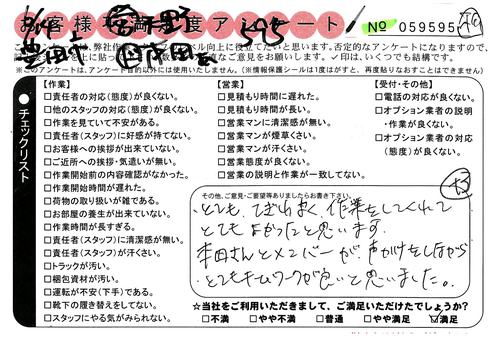 お客様満足度アンケート
№ 059595
595
このアンケートは、
否定的なアンケートになりますので、
ご意見をお願いします。✓印は、いくつでも結構です。
※このアンケートは、アンケート目的以外には使用いたしません。(※情報保護シールは1度はがすと、再度貼りなおすことはできません。)
●チェックリスト
【作業】
□責任者の対応(態度)が良くない。
□他のスタッフの対応(態度)が良くない。
□作業を見ていて不安がある。
□責任者(スタッフ)に好感が持てない。
□お客様への挨拶が出来ていない。
□ご近所への挨拶・気遣いが無い。
□作業開始前の内容確認がなかった。
□作業開始時間が遅れた。
□荷物の取り扱いが雑である。
□お部屋の養生が出来ていない。
□作業時間が長すぎる。
□責任者(スタッフ)に清潔感が無い。
□責任者(スタッフ)が汗くさい。
□トラックが汚い。
□梱包資材が汚い。
□運転が不安(下手)である。
□靴下の履き替えをしてない。
□スタッフにやる気がみられない。
【営業】
□見積もり時間に遅れた。
□見積もり時間が長い。
□営業マンに清潔感が無い。
□営業マンが煙草くさい。
□営業マンが汗くさい。
□営業態度が良くない。
□営業の説明と作業が一致してない。
【受付・その他】
□電話の対応が良くない。
□オプション業者の説明
・作業が良くない。
□オプション業者の対応
(態度)が良くない。
その他、ご意見・ご要望等ありましたらお書き下さい。
とても、てぎわよく、作業をしてくれて
とてもよかったと思います。
本田さんとメンバーが、声かけをしながら
とてもチームワークが良いと思いました。
☆当社をご利用いただきまして、ご満足いただけたでしょうか?
□不満 □やや不満 □普通 □やや満足 ☑満足